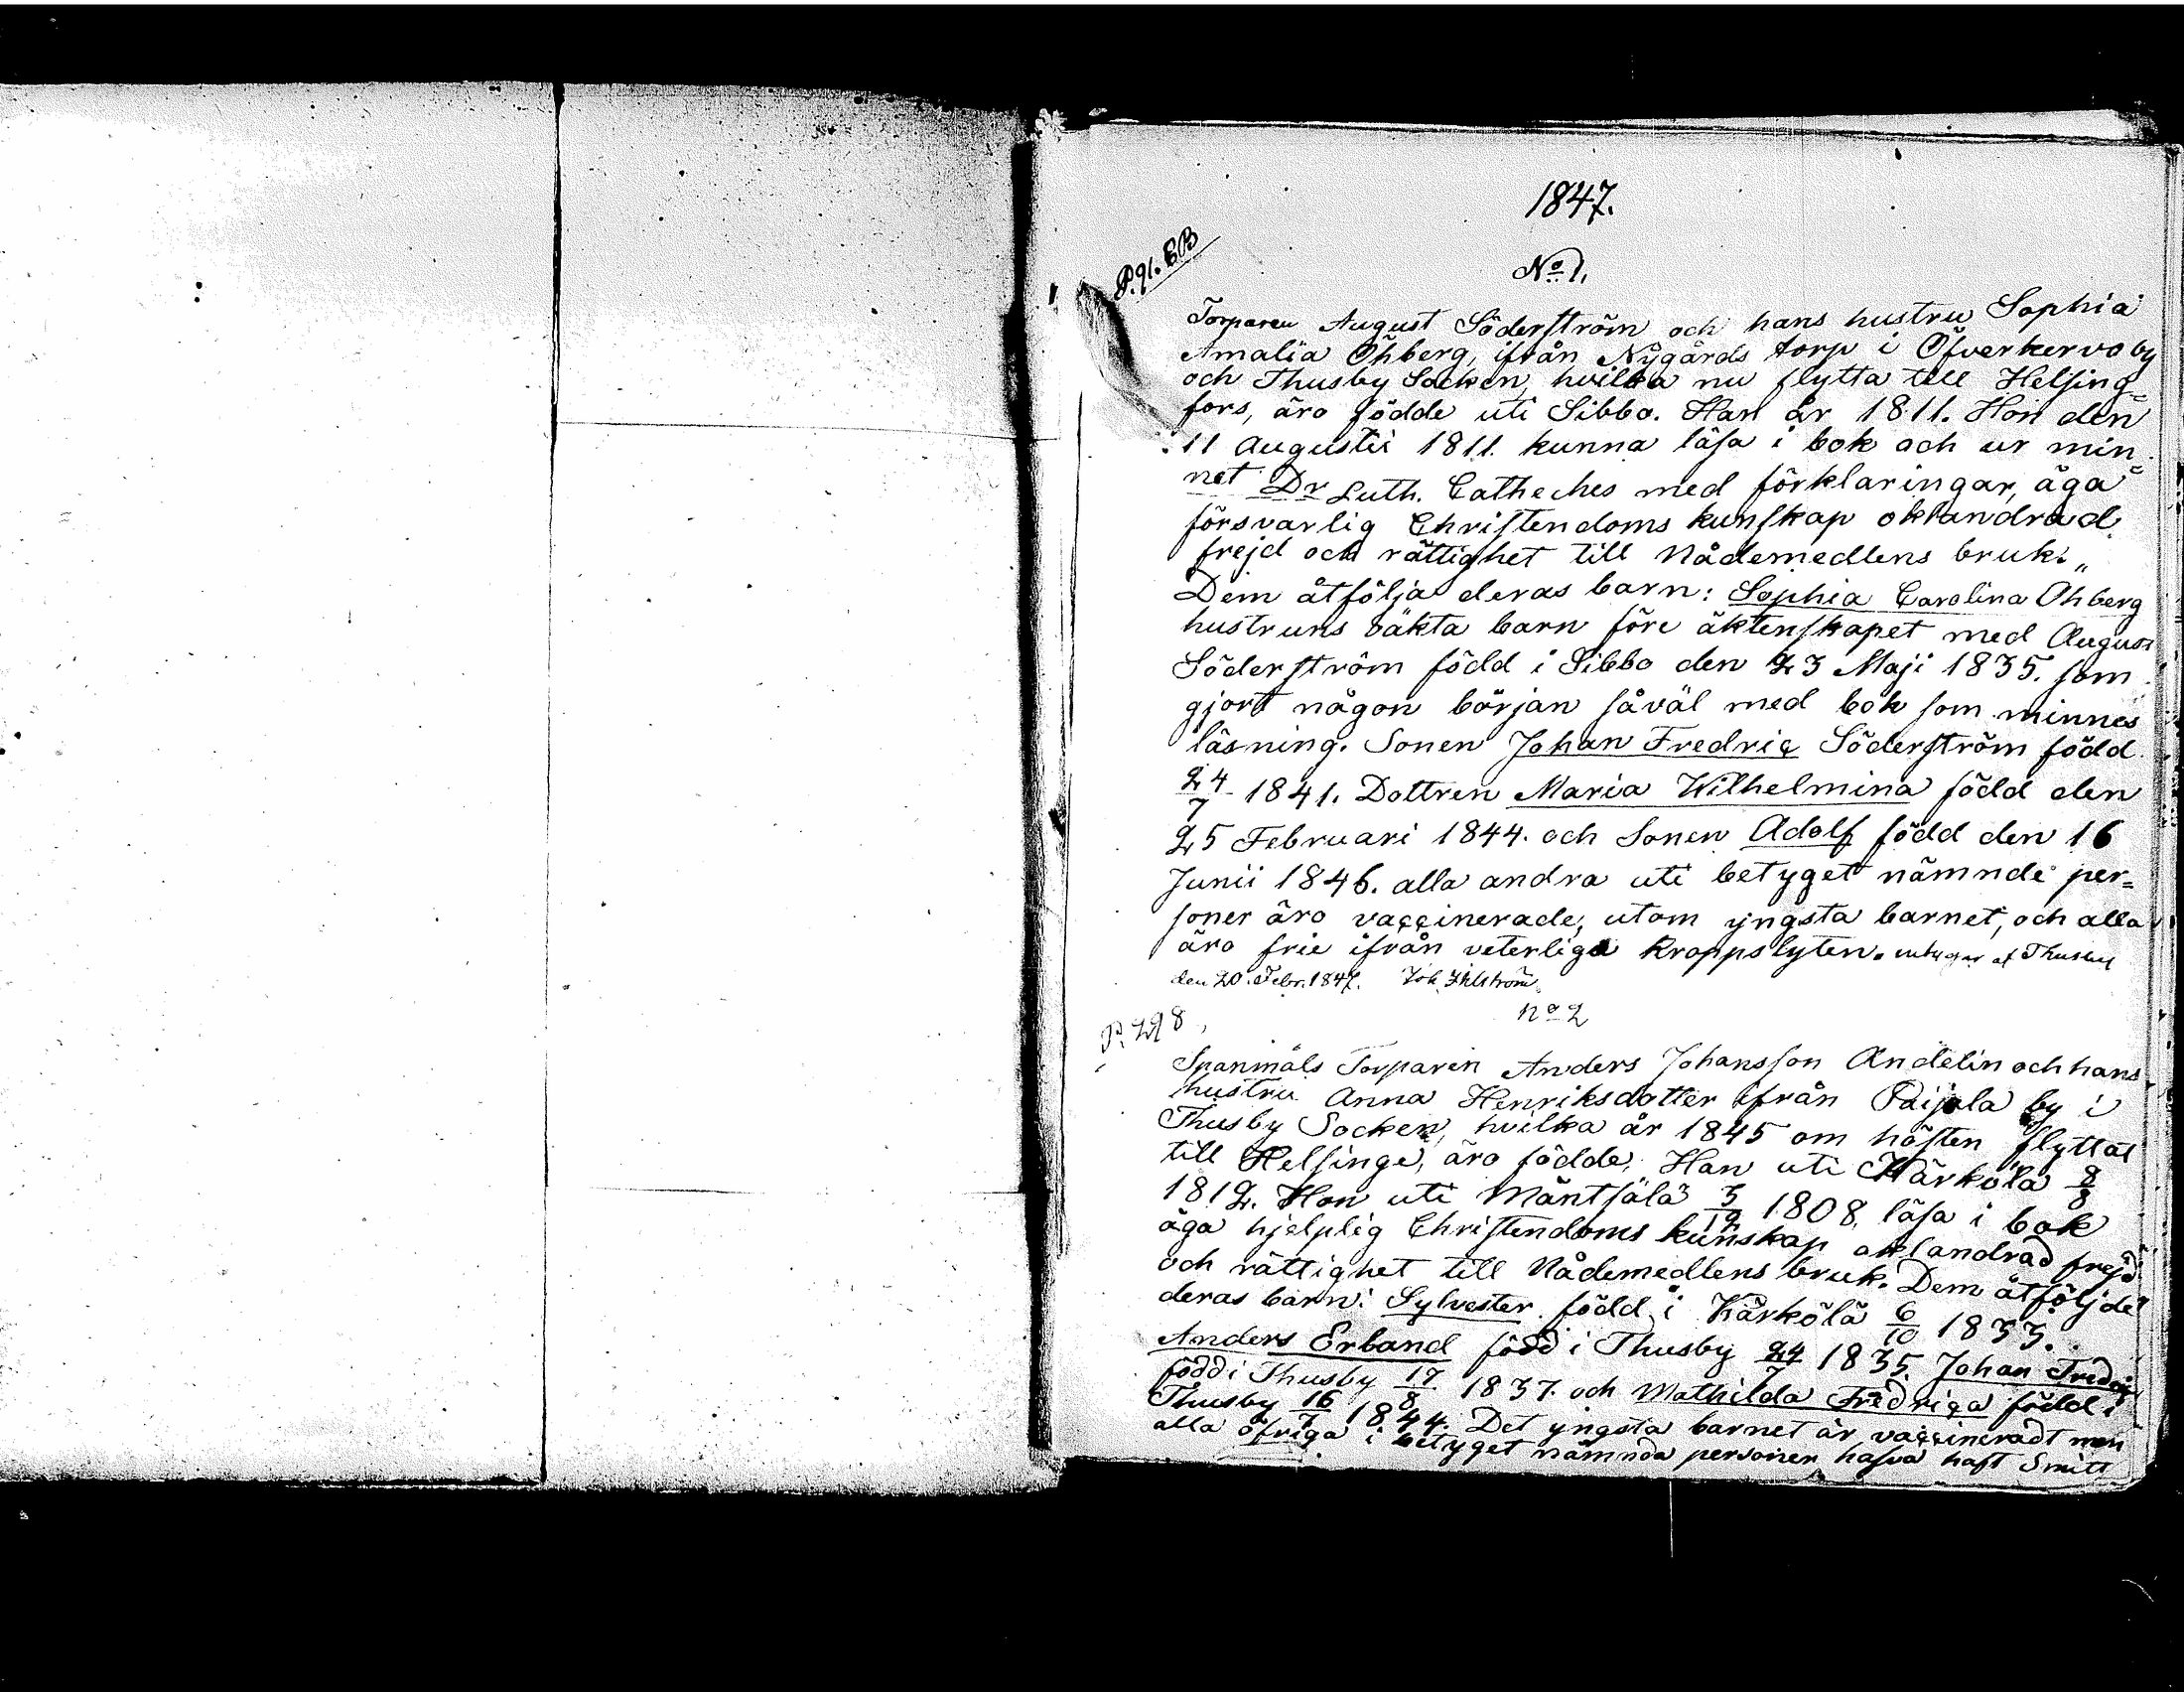 1847.
P. 91. EB
No 1.
Torparen August Söderström och hans hustru Sophia
Amalia Öhberg, ifrån Nÿgårds torp i Öfverkervo by
och Thusby Socken, hvilka nu flytta till Helsing=
fors, äro födde uti Sibbo. Han år 1811. Hon den
11 Augustii 1811. kunna läsa i bok och ur min=
net Dr Luth. Catheches med förklaringar, äga
försvarlig Christendoms kunskap oklandrad
frejd och rättighet till Nådemedlens bruk. „
Dem åtfölja deras barn: Sophia Carolina Ohberg
hustruns oäkta barn före äktenskapet med August
Söderström född i Sibbo den 23 Maji 1835. som
gjort någon början såväl med bok som minnes
läsning. Sonen Johan Fredric Söderström född
24/7 1841. Dottren Maria Wilhelmina född den
25 Februari 1844. och Sonen Adolf född den 16
Junii 1846. alla andra uti betyget nämnde per=
soner äro vaccinerade, utom yngsta barnet, och alla
äro frie ifrån veterliga kroppslyten. af Thusby
den 20. Febr. 1847. Joh. Ihlström
no 2
P. 298
Spanmåls Torparen Anders Johansson Andelin och hans
hustru Anna Henriksdotter ifrån Paijala by i
Thusby Socken, hvilka år 1845 om hösten flyttat
till Helsinge, äro födde, Han uti Kärkölä 8/8
1812. Hon uti Mäntsälä 3/12 1808. läsa i bok
äga hjelplig Christendoms kunskap oklandrad frejd
och rättighet till Nådemedlens bruk. Dem åtföljde
deras barn: Sylvester född i Kärkölä 6/10 1833.
Anders Erland född i Thusby 24/7 1835. Johan Fredric
född i Thusby 17/8 1837. och Mathilda Fredrica född i
Thusby 16/7 1844. Det yngsta barnet är vaccineradt men
alla öfriga i betyget nämnda personer hafva haft Smitt